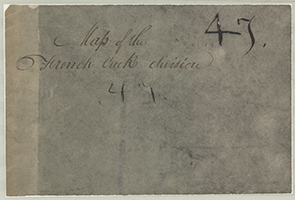 47.
Map of the
French Creek division
47.